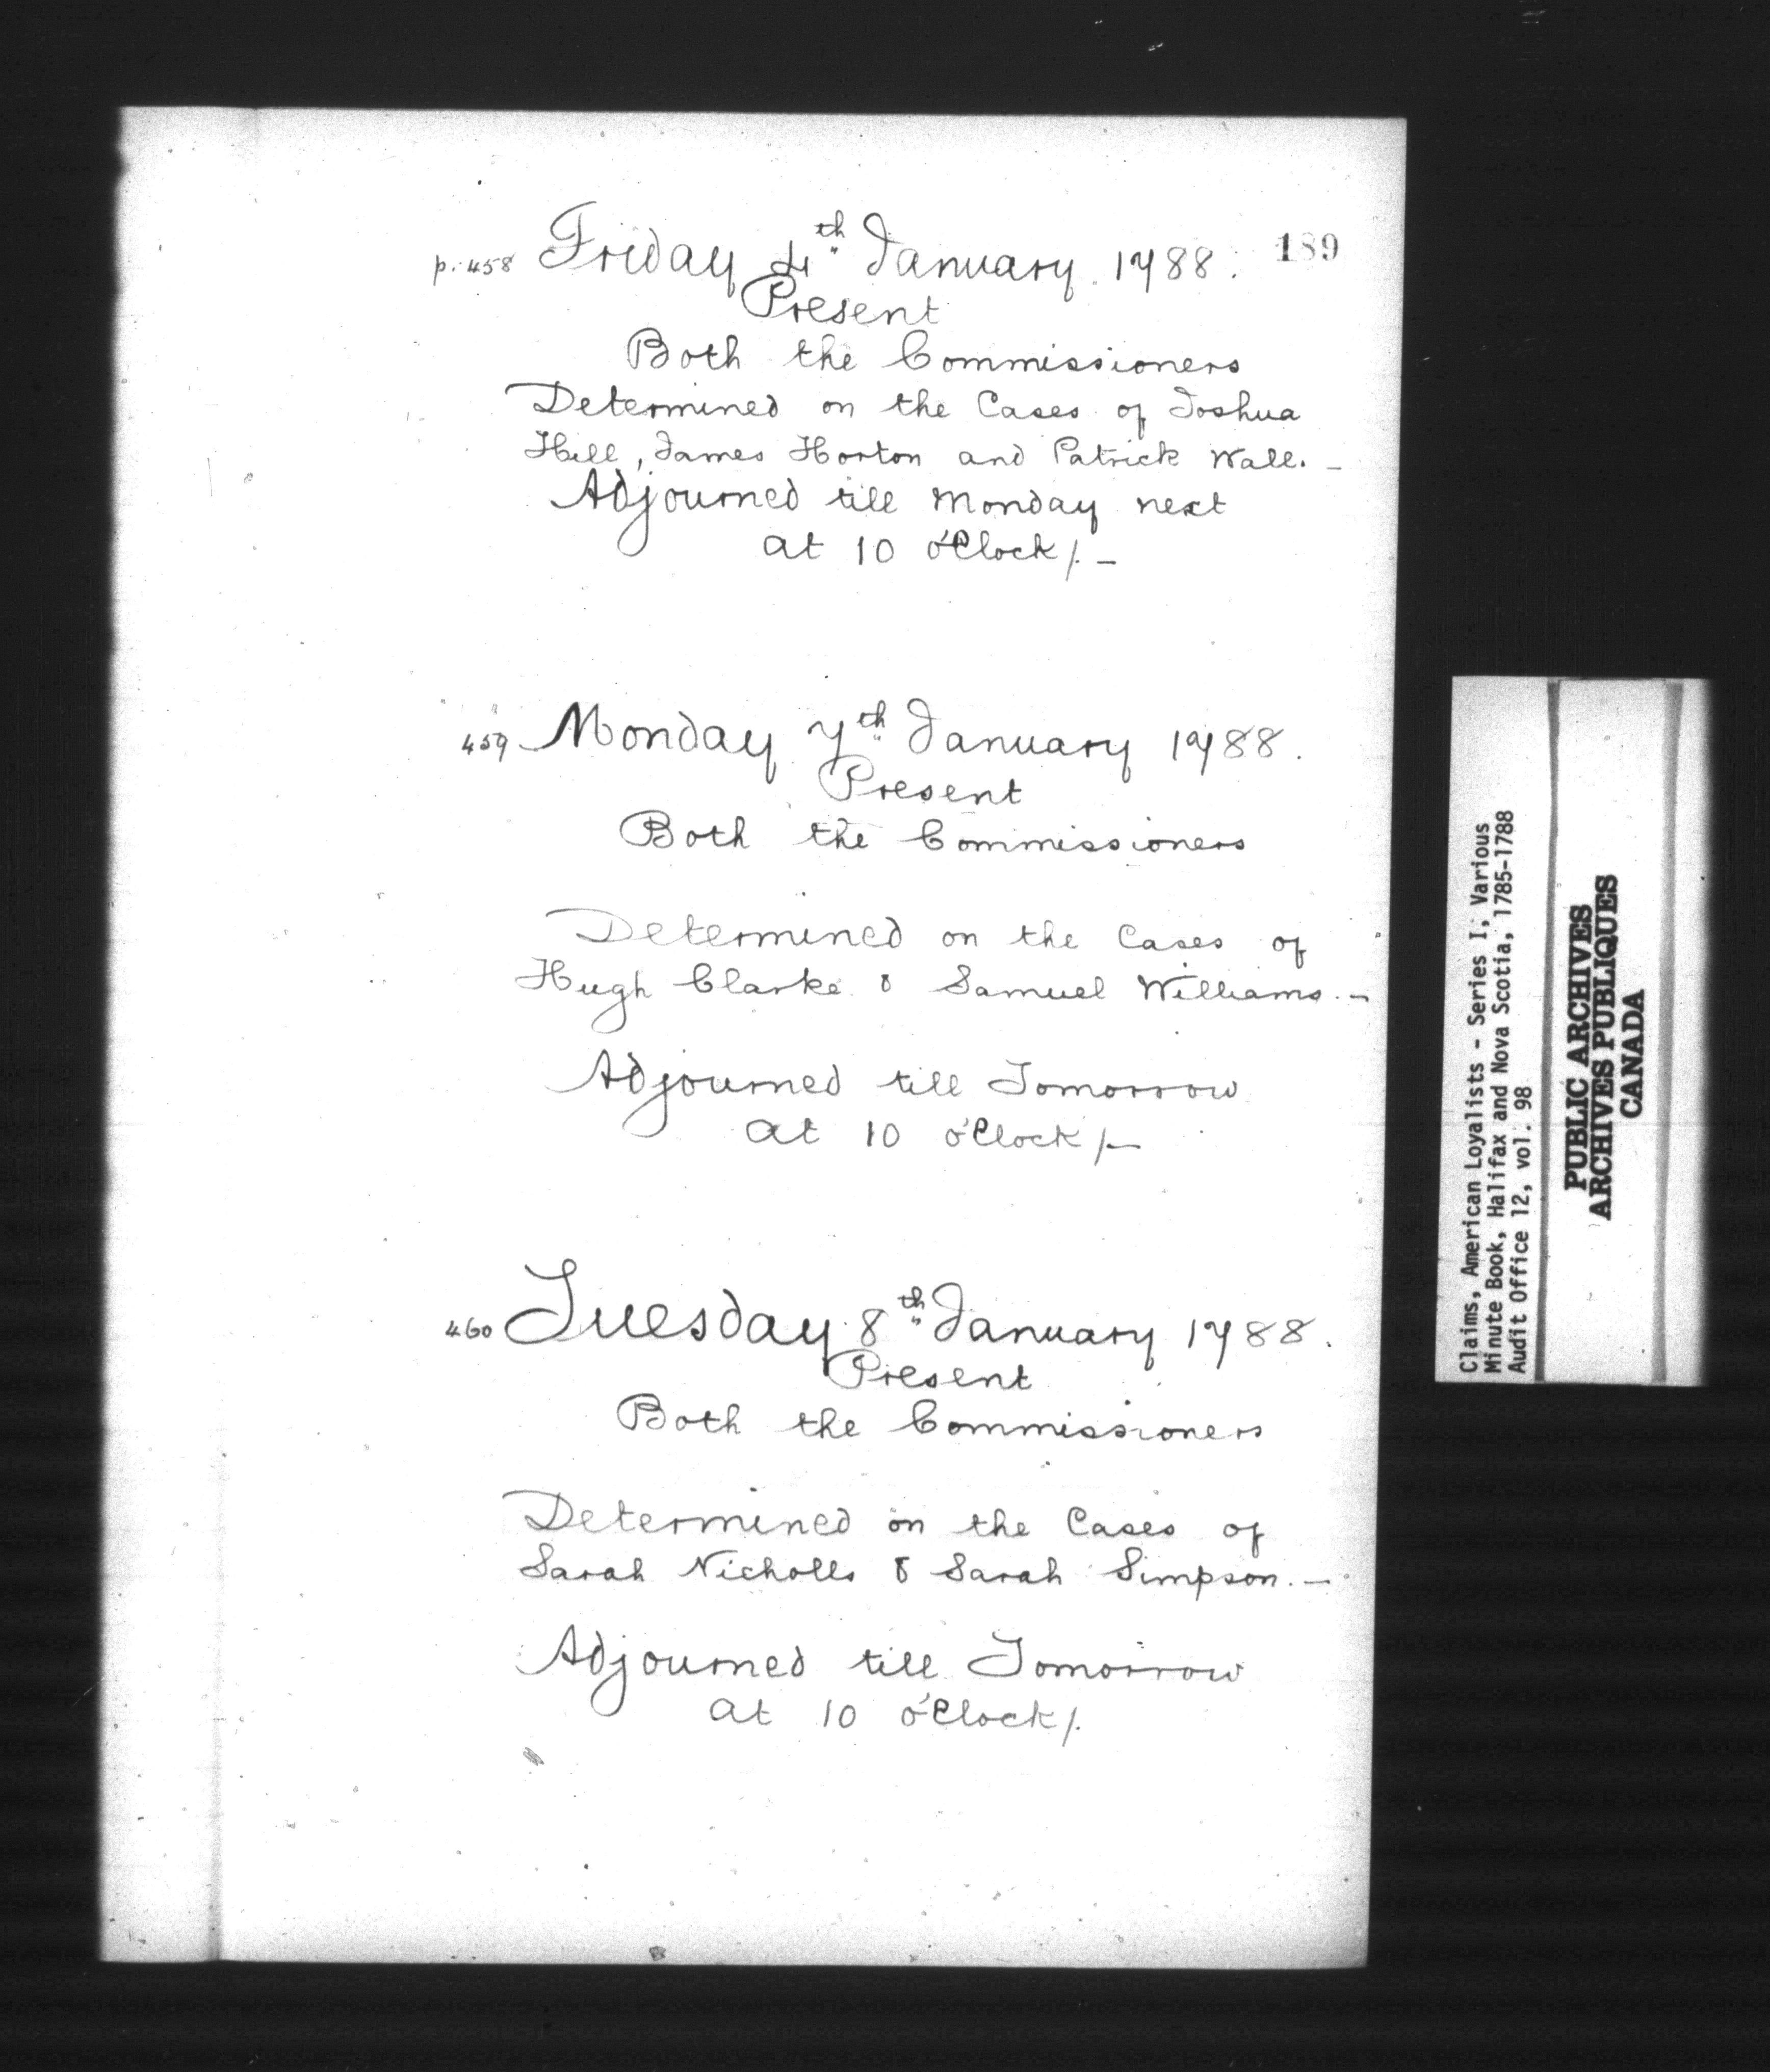 189
p. 458 Friday 4th January 1788.
Present
Both the Commissioners
Determined on the Cases of Joshua
Hill, James Horton and Patrick Wall. –
Adjourned till Monday next
at 10 o'Clock/. –
459 Monday 7th January 1788.
Present
Both the Commissioners
Determined on the Cases of
Hugh Clarke & Samuel Williams. –
Adjourned till Tomorrow
at 10 o'Clock/–
460 Tuesday 8th January 1788.
Present
Both the Commissioners
Determined on the Cases of
Sarah Nicholls & Sarah Simpson. –
Adjourned till Tomorrow
at 10 o'Clock/.
Claims, American Loyalists - Series I, Various
Minute Book, Halifax and Nova Scotia, 1785-1788
Audit Office 12, vol. 98
PUBLIC ARCHIVES
ARCHIVES PUBLIQUES
CANADA